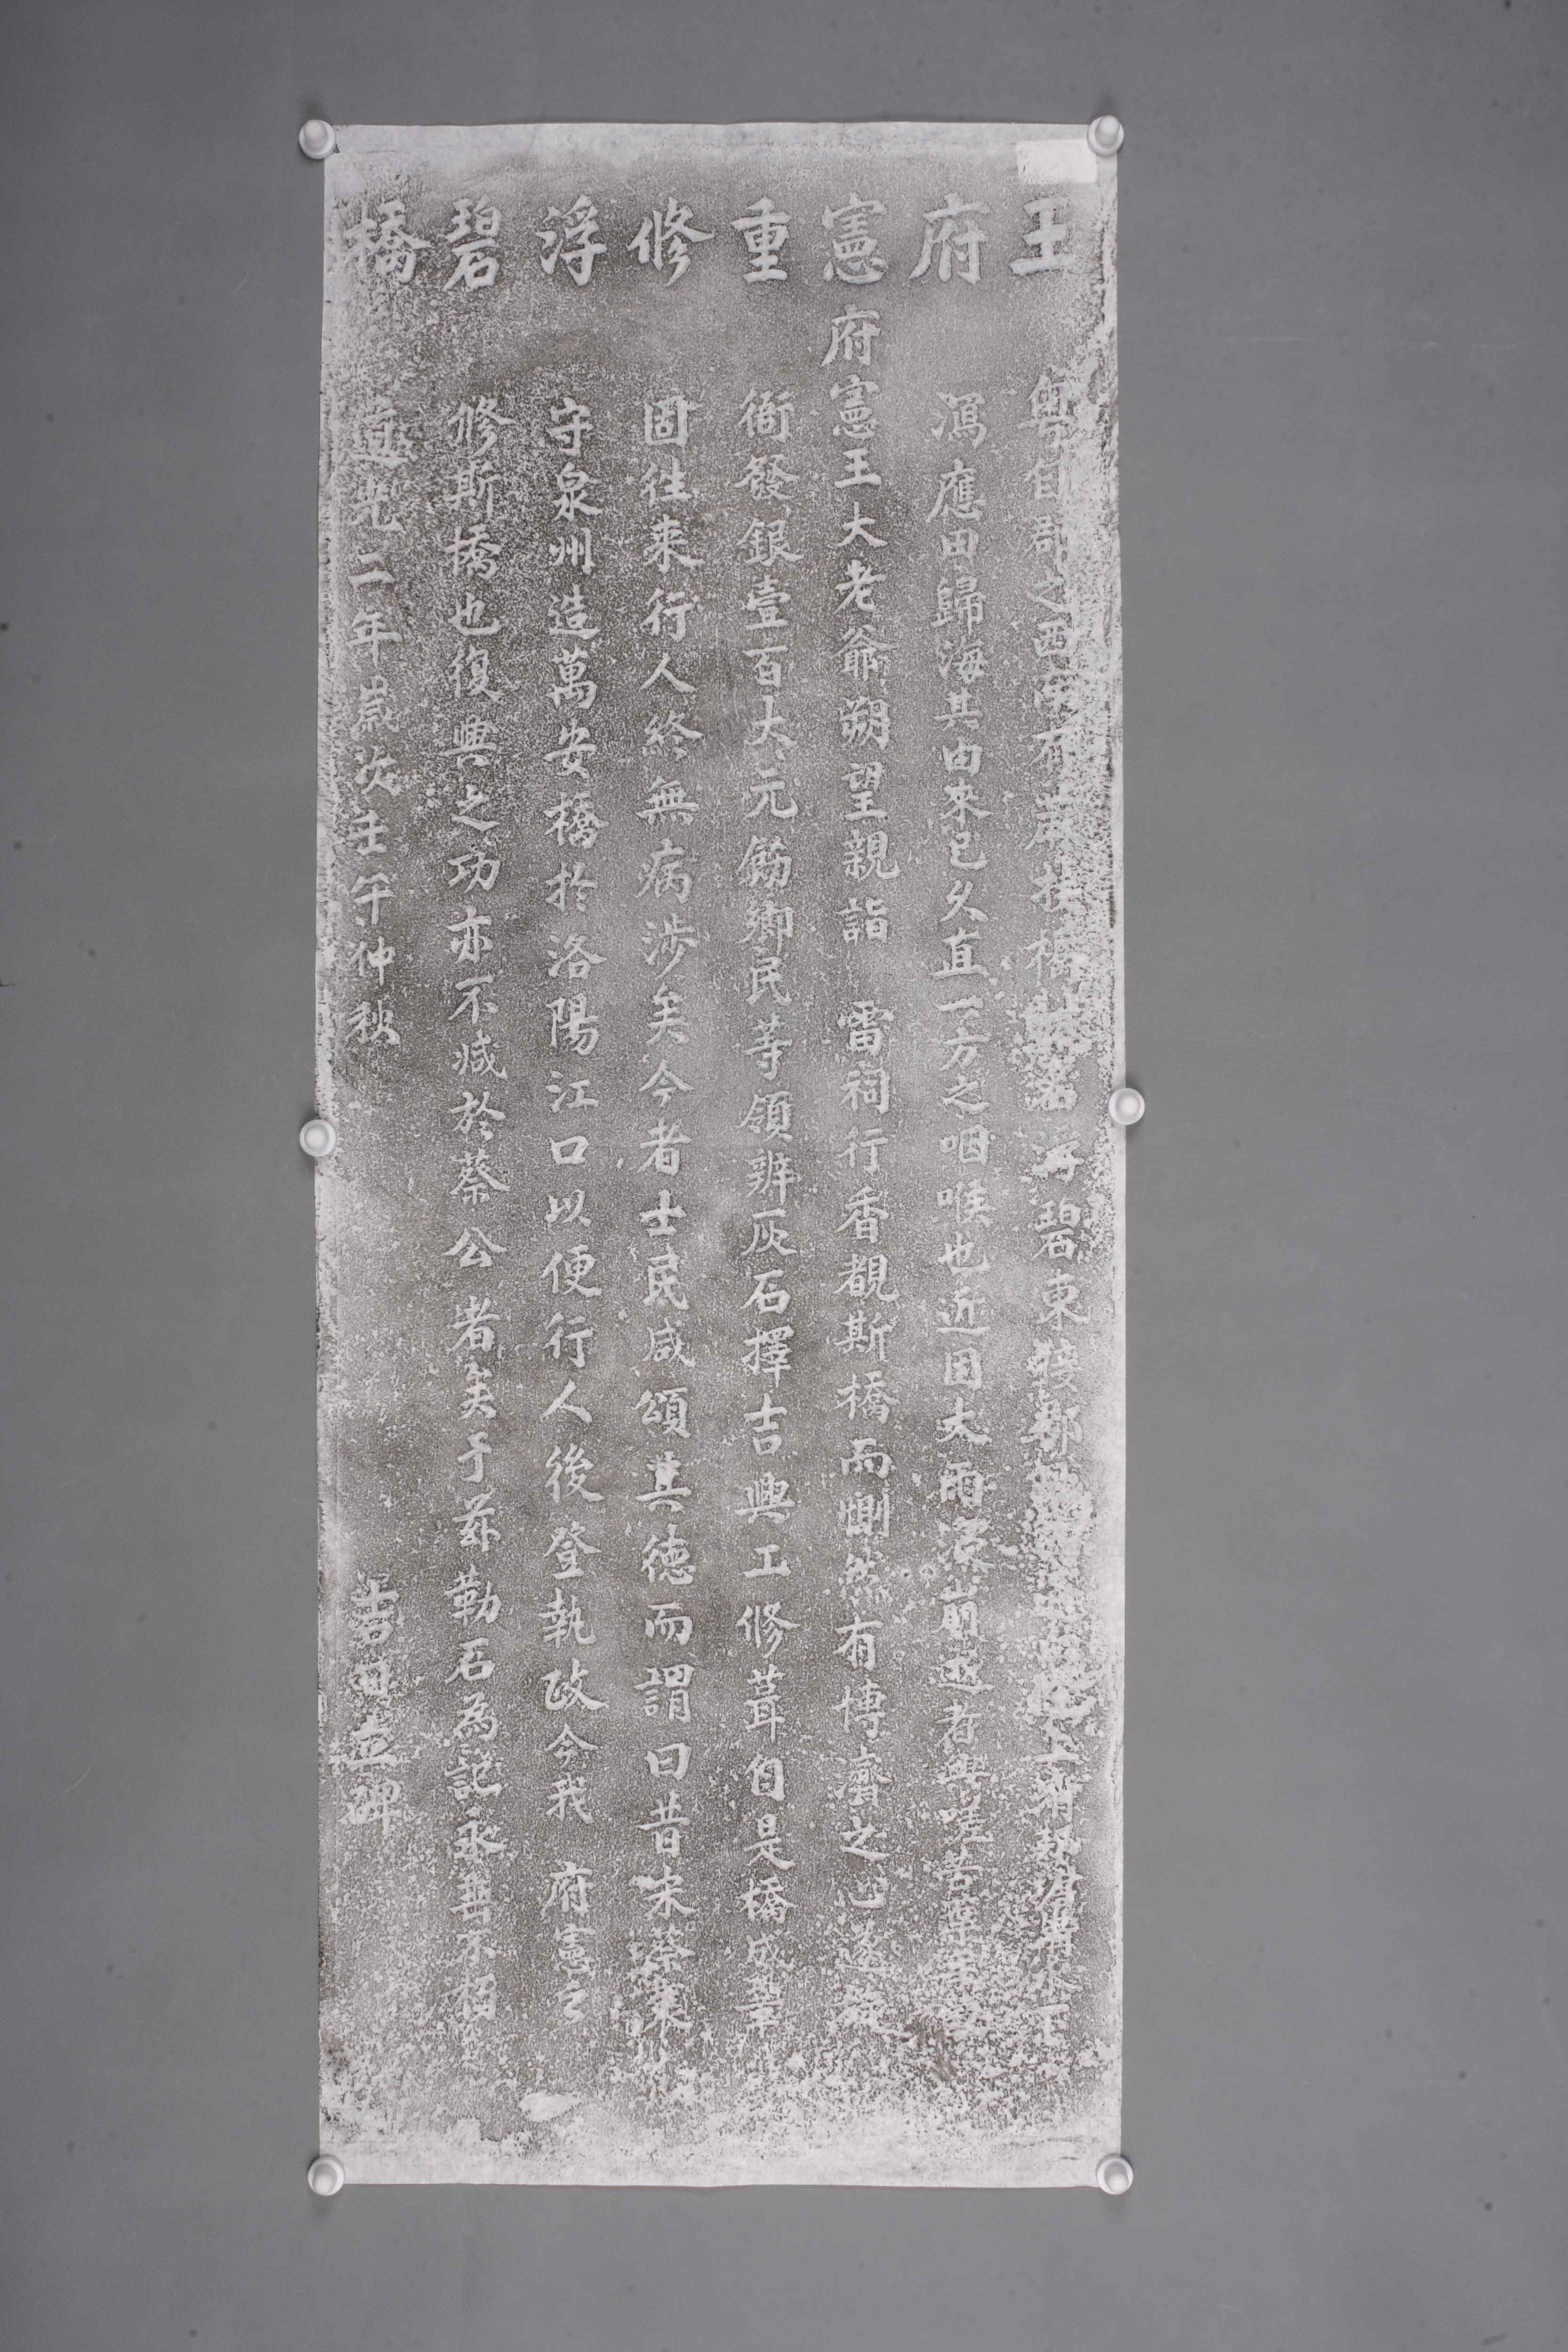 王府憲重修浮碧橋
粵自郡之西南有 橋 浮碧東接郡 上有 下
瀉應田歸海其由來已久直一方之咽喉也近因大雨 崩越者興嗟苦
府憲王大老爺朔望親詣 雷祠行香覩斯橋而惻然有博濟之心遂
衙發銀壹百大元飭鄉民等領辦灰石擇吉興工修葺自是橋成鞏
固往來行人終無病涉矣今者士民咸頌其德而謂曰昔宋蔡襄
守泉州造萬安橋於洛陽江口以便行人後登執政今我 府憲之
修斯橋也復興之功亦不減於蔡公者矣于茲勒石為記永垂不朽
道光二年歲次壬午仲秋 吉日立碑